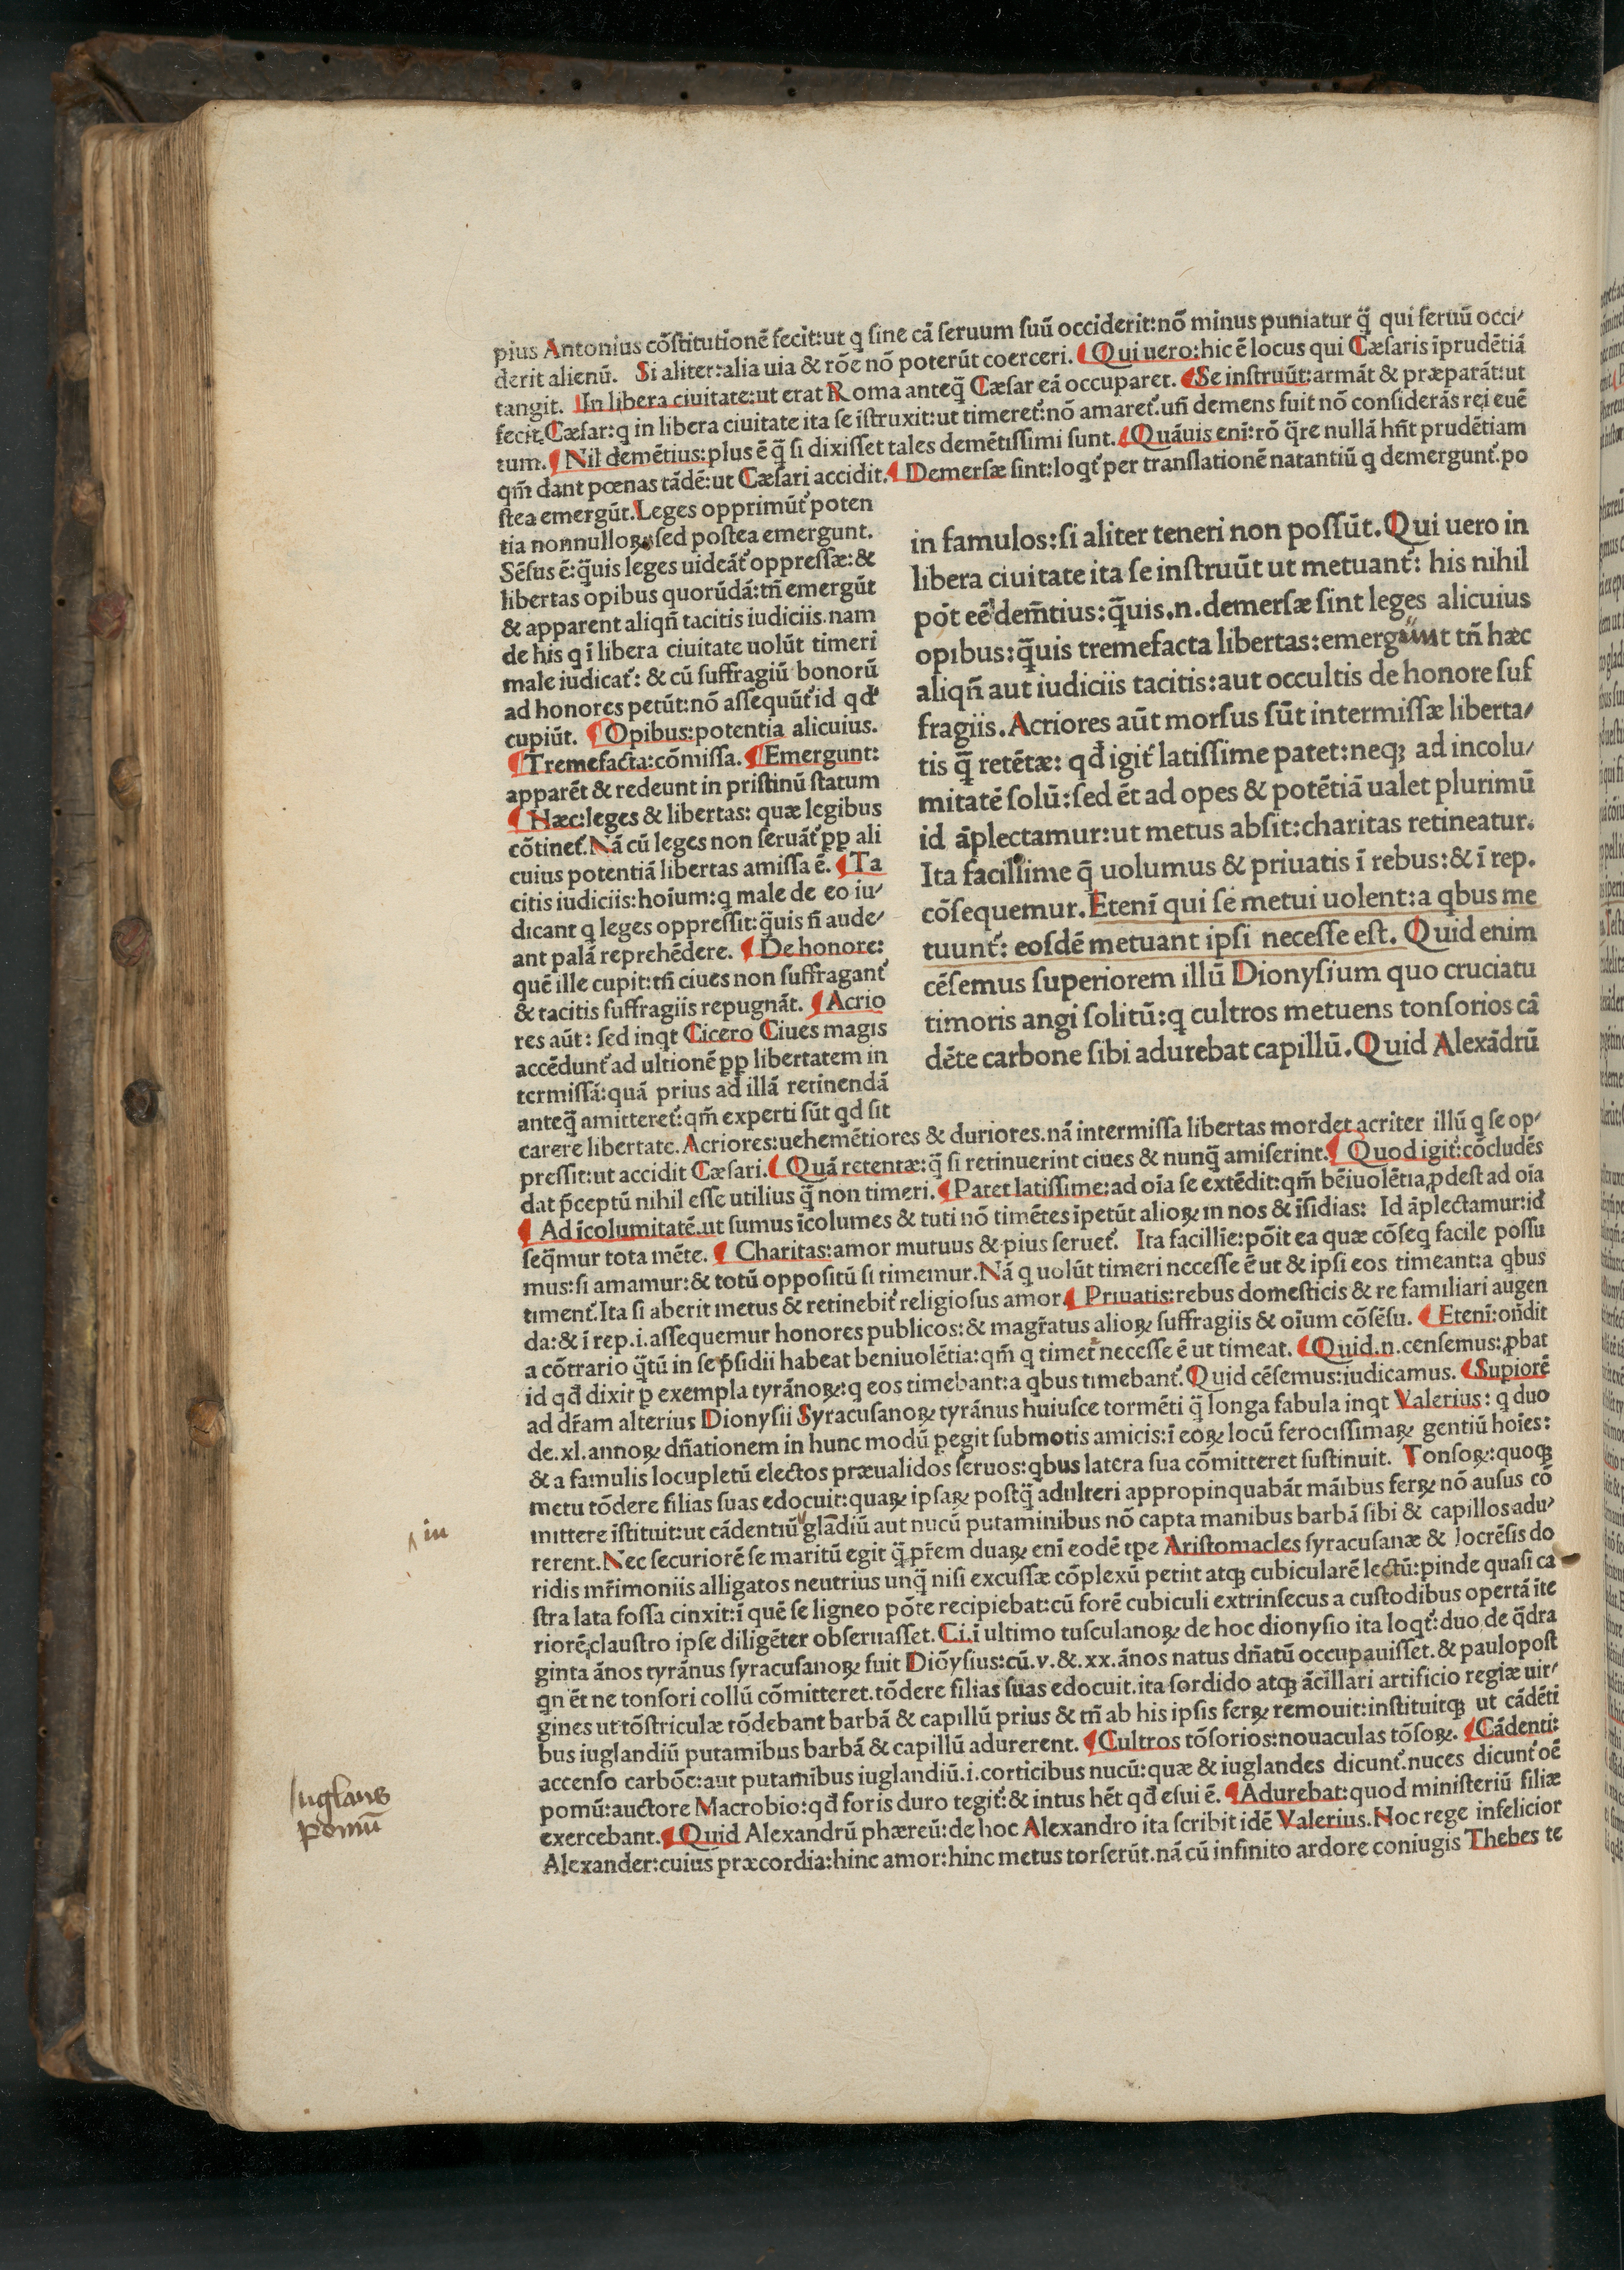 pius Antonius cōſtitutionē fecit:ut q ſine cā ſeruum ſuū occiderit:nō minus puniatur q̄ qui ſeruū occi/
derit alienū. Si aliter:alia uia & rōe nō poterūt coerceri. ¶ Qui uero:hic ē locus qui Cæſaris īprudētiā
tangit. ¶ In libera ciuitate:ut erat Roma anteq̄ Cæſar eā occuparet. ¶ Se inſtruūt:armāt & præparāt:ut
fecit Cæſar:q in libera ciuitate ita ſe īſtruxit:ut timeret᷑:nō amaret᷑.uñ demens fuit nō conſiderās rei euē
tum. ¶ Nil demētius:plus ē q̄ ſi dixiſſet tales demētiſſimi ſunt. ¶ Quāuis enī:rō q̄re nullā hñt prudētiam
qm̄ dant pœnas tādē:ut Cæſari accidit. ¶ Demerſæ ſint:loqt᷑ per tranſlationē natantiū q demergunt᷑.po
ſtea emergūt.Leges opprimūt᷑ poten
tia nonnulloꝝ:ſed poſtea emergunt.
Sēſus ē:q̄uis leges uideāt᷑ oppreſſæ:&
libertas opibus quorūdā:tñ emergūt
& apparent aliqñ tacitis iudiciis.nam
de his q ī libera ciuitate uolūt timeri
male iudicat᷑: & cū ſuffragiū bonorū
ad honores petūt:nō aſſequūt᷑ id qđ
cupiūt. ¶ Opibus:potentia alicuius.
¶ Tremefacta:cōmiſſa. ¶ Emergunt:
apparēt & redeunt in priſtinū ſtatum
¶ Hæc:leges & libertas: quæ legibus
cōtinet᷑.Nā cū leges non ſeruāt᷑ ꝓp ali
cuius potentiā libertas amiſſa ē. ¶ Ta
citis iudiciis:hoīum:q male de eo iu/
dicant q leges oppreſſit:q̄uis ñ aude/
ant palā reprehēdere. ¶ De honore:
quē ille cupit:tñ ciues non ſuffragant᷑
& tacitis ſuffragiis repugnāt. ¶ Acrio
res aūt: ſed inqt Cicero Ciues magis
accēdunt᷑ ad ultionē ꝓp libertatem in
termiſſā:quā prius ad illā retinendā
anteq̄ amitteret᷑:qm̄ experti ſūt qd ſit
in famulos:ſi aliter teneri non poſſūt.Qui uero in
libera ciuitate ita ſe inſtruūt ut metuant᷑: his nihil
pōt eē dem̄tius:q̄uis.n.demerſæ ſint leges alicuius
opibus:q̄uis tremefacta libertas:emergūnt tñ hæc
aliqñ aut iudiciis tacitis:aut occultis de honore ſuf
fragiis.Acriores aūt morſus ſūt intermiſſæ liberta/
tis q̄ retētæ: qđ igit᷑ latiſſime patet:neqꝫ ad incolu/
mitatē ſolū:ſed ēt ad opes & potētiā ualet plurimū
id āplectamur:ut metus abſit:charitas retineatur.
Ita facillime q̄ uolumus & priuatis ī rebus:& ī rep.
cōſequemur.Etenī qui ſe metui uolent:a qbus me
tuunt᷑: eoſdē metuant ipſi neceſſe eſt. Quid enim
cēſemus ſuperiorem illū Dionyſium quo cruciatu
timoris angi ſolitū:q cultros metuens tonſorios cā
dēte carbone ſibi adurebat capillū.Quid Alexādrū
carere libertate.Acriores:uehemētiores & duriores.nā intermiſſa libertas mordet acriter illū q ſe op/
preſſit:ut accidit Cæſari. ¶ Quā retentæ:q̄ ſi retinuerint ciues & nunq̄ amiſerint. ¶ Quod igit᷑:cōcludēs
dat p̄ceptū nihil eſſe utilius q̄ non timeri. ¶ Patet latiſſime:ad oīa ſe extēdit:qm̄ bēiuolētia ꝓdeſt ad oīa
¶ Ad īcolumitatē.ut ſumus īcolumes & tuti nō timētes īpetūt alioꝝ in nos & īſidias: Id āplectamur:id
ſeq̄mur tota mēte. ¶ Charitas:amor mutuus & pius ſeruet᷑. Ita facillīe:pōit ea quæ cōſeq facile poſſu
mus:ſi amamur:& totū oppoſitū ſi timemur.Nā q uolūt timeri neceſſe ē ut & ipſi eos timeant:a qbus
timent᷑.Ita ſi aberit metus & retinebit᷑ religioſus amor ¶ Priuatis:rebus domeſticis & re familiari augen
da:& ī rep.i.aſſequemur honores publicos:& magr̄atus alioꝝ ſuffragiis & oīum cōſēſu. ¶ Etenī:oñdit
a cōtrario q̄tū in ſe p̄ſidii habeat beniuolētia:qm̄ q timet᷑ neceſſe ē ut timeat. ¶ Quid.n.cenſemus:ꝓbat
id qđ dixit ꝑ exempla tyrānoꝝ:q eos timebant:a qbus timebant᷑.Quid cēſemus:iudicamus. ¶ Supiorē
ad dr̄am alterius Dionyſii Syracuſanoꝝ tyrānus huiuſce tormēti q̄ longa fabula inqt Valerius: q duo
de.xl.annoꝝ dñationem in hunc modū pegit ſubmotis amicis:ī eoꝝ locū ferociſſimaꝝ gentiū hoīes:
& a famulis locupletū electos præualidos ſeruos:qbus latera ſua cōmitteret ſuſtinuit. Tonſoꝝ:quoqꝫ
metu tōdere filias ſuas edocuit:quaꝝ ipſaꝝ poſtq̄ adulteri appropinquabāt māibus ferꝝ nō auſus cō
mittere īſtituit:ut cādentiū glādiū aut nucū putaminibus nō capta manibus barbā ſibi & capillos adu/
rerent.Nec ſecuriorē ſe maritū egit q̄ pr̄em duaꝝ enī eodē tpe Ariſtomacles ſyracuſanæ & locrēſis do
ridis mr̄imoniis alligatos neutrius unq̄ niſi excuſſæ cōplexū petiit atqꝫ cubicularē lectū:pinde quaſi ca
ſtra lata foſſa cinxit:ī quē ſe ligneo pōte recipiebat:cū forē cubiculi extrinſecus a cuſtodibus opertā īte
riorē clauſtro ipſe diligēter obſeruaſſet.Ci.ī ultimo tuſculanoꝝ de hoc dionyſio ita loqt᷑:duo de q̄dra
ginta ānos tyrānus ſyracuſanoꝝ fuit Diōyſius:cū.v.&.xx.ānos natus dñatū occupauiſſet.& paulopoſt
qn ēt ne tonſori collū cōmitteret.tōdere filias ſuas edocuit.ita ſordido atqꝫ ācillari artificio regiæ uir/
gines ut tōſtriculæ tōdebant barbā & capillū prius & tñ ab his ipſis ferꝝ remouit:inſtituitqꝫ ut cādēti
bus iuglandiū putamībus barbā & capillū adurerent. ¶ Cultros tōſorios:nouaculas tōſoꝝ. ¶ Cādenti:
accenſo carbōe:aut putamībus iuglandiū.i.corticibus nucū:quæ & iuglandes dicunt᷑.nuces dicunt᷑ oē
pomū:auctore Macrobio:qđ foris duro tegit᷑:& intus hēt qđ eſui ē. ¶ Adurebat:quod miniſteriū filiæ
exercebant. ¶ Quid Alexandrū phæreū:de hoc Alexandro ita ſcribit idē Valerius.Hoc rege infelicior
Alexander:cuius præcordia:hinc amor:hinc metus torſerūt.nā cū infinito ardore coniugis Thebes te
in
Iuglans
pomū